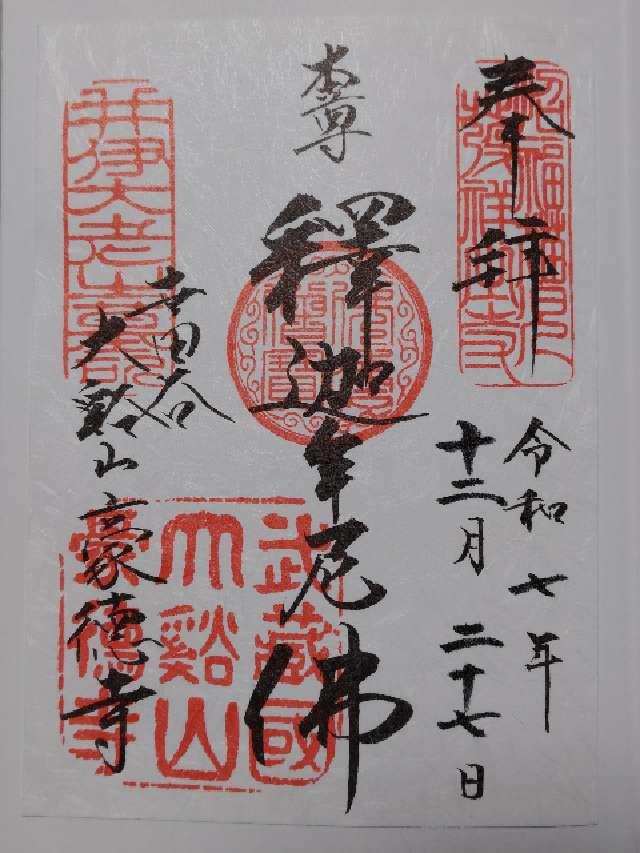 奉拝
令和七年
十二月二十七日
本尊
釋迦牟尼佛
世田谷
大谿山豪徳寺
武藏國
大谿山
豪德寺